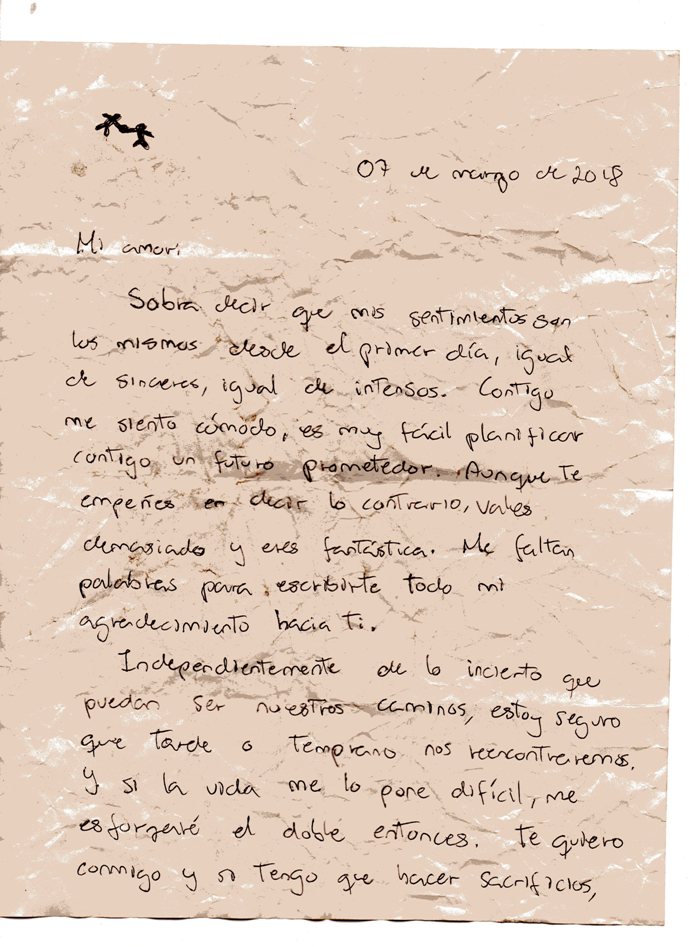 07 de marzo de 2018
Mi amor:
Sobra decir que mis sentimientos son
los mismos desde el primer día, igual
de sinceros, igual de intensos. Contigo
me siento cómodo, es muy fácil planificar
contigo un futuro prometedor. Aunque te
empeñes en decir lo contrario, vales
demasiado y eres fantástica. Me faltan
palabras para escribirte todo mi
agradecimiento hacia ti.
Independientemente de lo incierto que
puedan ser nuestros caminos, estoy seguro
que tarde o temprano nos reencontraremos.
Y si la vida me lo pone difícil, me
esforzaré el doble entonces. Te quiero
conmigo y si tengo que hacer sacrificios,